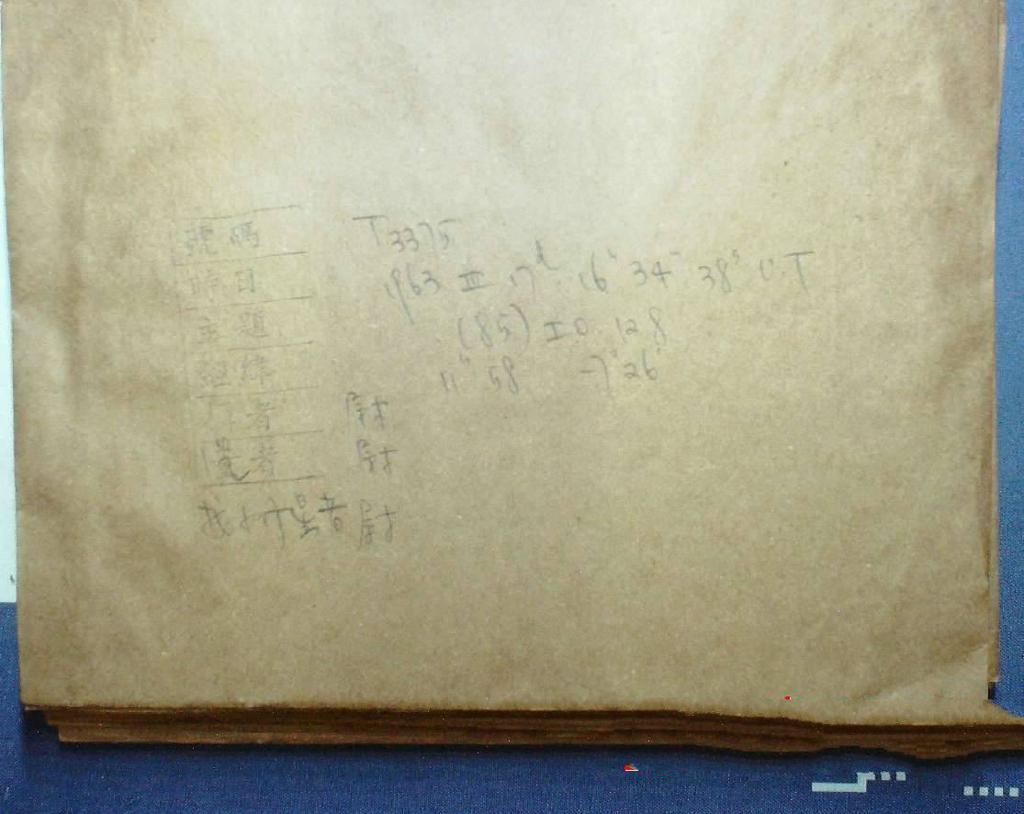 號碼 T3375
時日 1963 III 17d 16h 34m 38s U.T
主題 (85) IO 128
經緯 11h 58 -7°26'
者 尉
覽者 尉
星者 尉